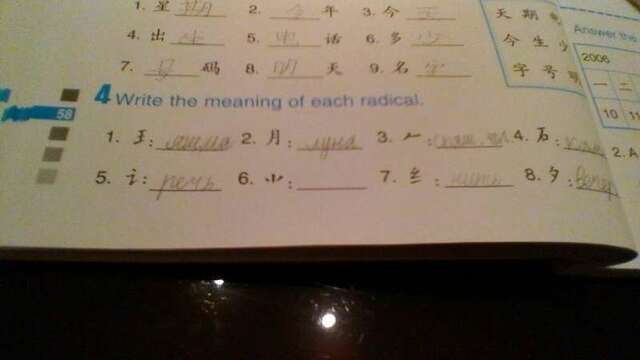 1. 星 期 2. 今 年 3. 今 天
4. 出 生 5. 电 话 6. 多 少
7. 号 码 8. 明 天 9. 名 字
天 期
今 生 少
字 号
Answer the
2006
一 二
10 11
2. A
58
4 Write the meaning of each radical.
1. 王: яшма 2. 月: луна 3. 𠂉: 4. 石:
5. 讠: речь 6. ⺌: 7. 纟: нить 8. 夕: